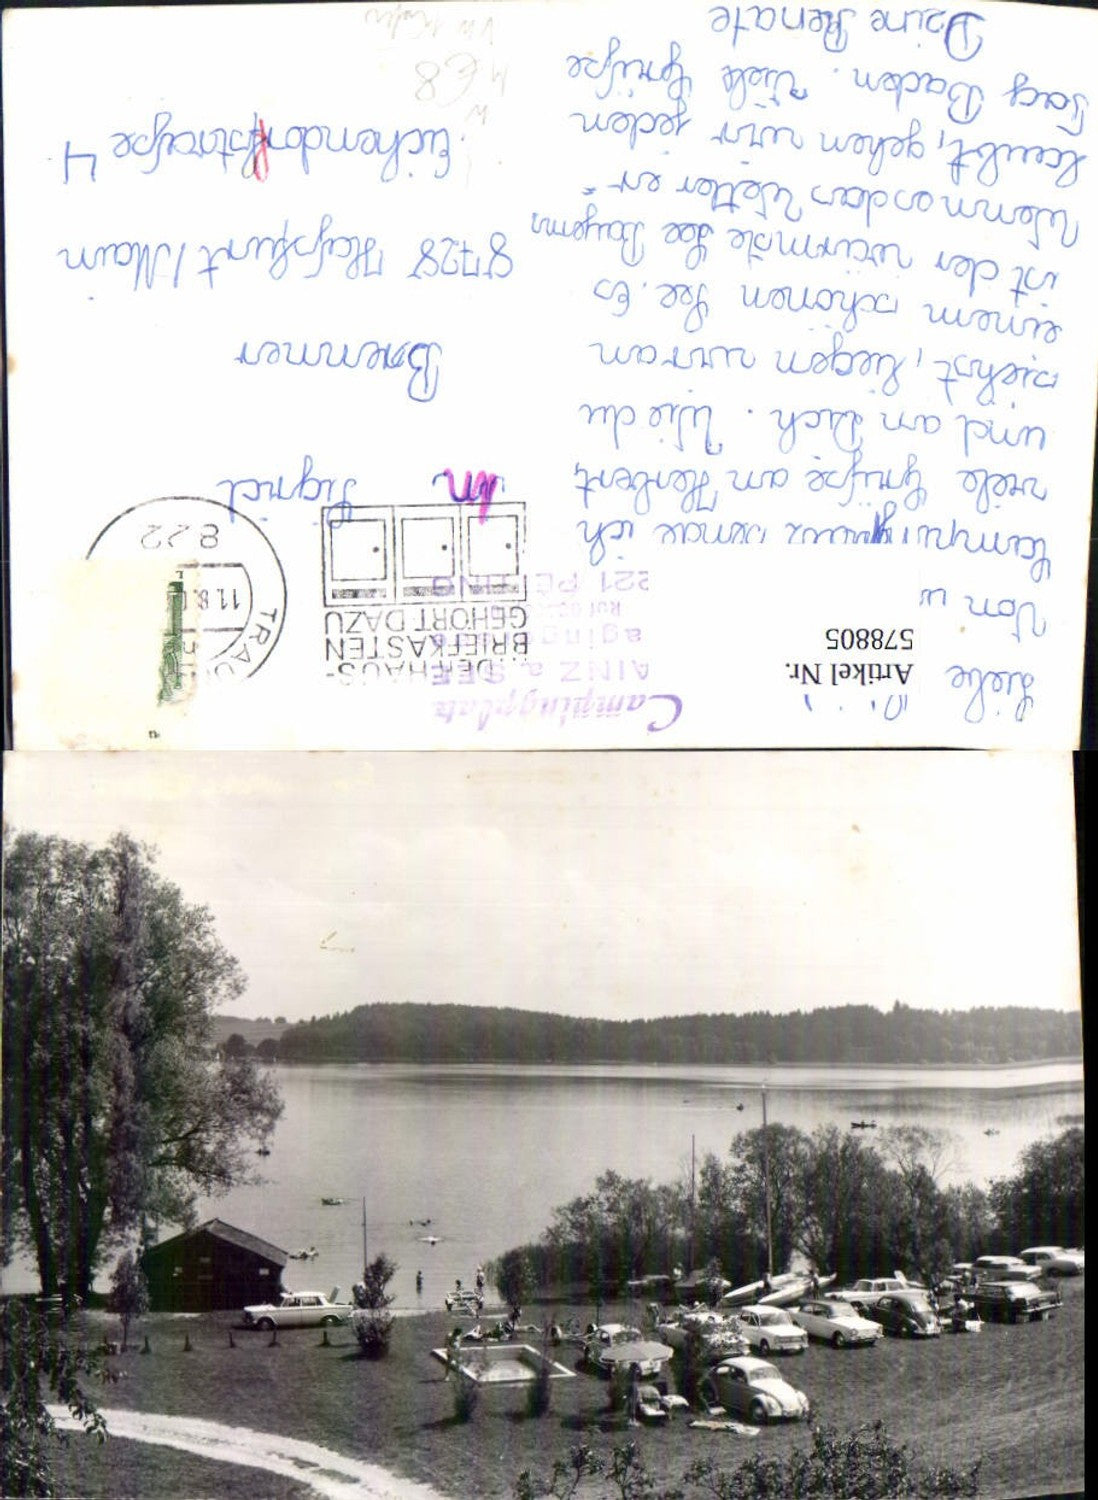 Liebe
Von u
Campingplatz sende ich
viele Grüße an Herbert,
und an Dich. Wie du
siehst, liegen wir an
einem schönen See. Es
ist der wärmste See Bayerns
Wenn es das Wetter er-
laubt, gehen wir jeden
Tag Baden. Viele Grüße
Deine Renate
Artikel Nr.
578805
Campingplatz
AINZ a. SEE
aginger
221 PETING
DER HAUS-
BRIEFKASTEN
GEHÖRT DAZU
TRAU
11.8.
8 22
Sigrid
Bremmer
8728 Haßfurt/Main
Eichendorffstraße 4